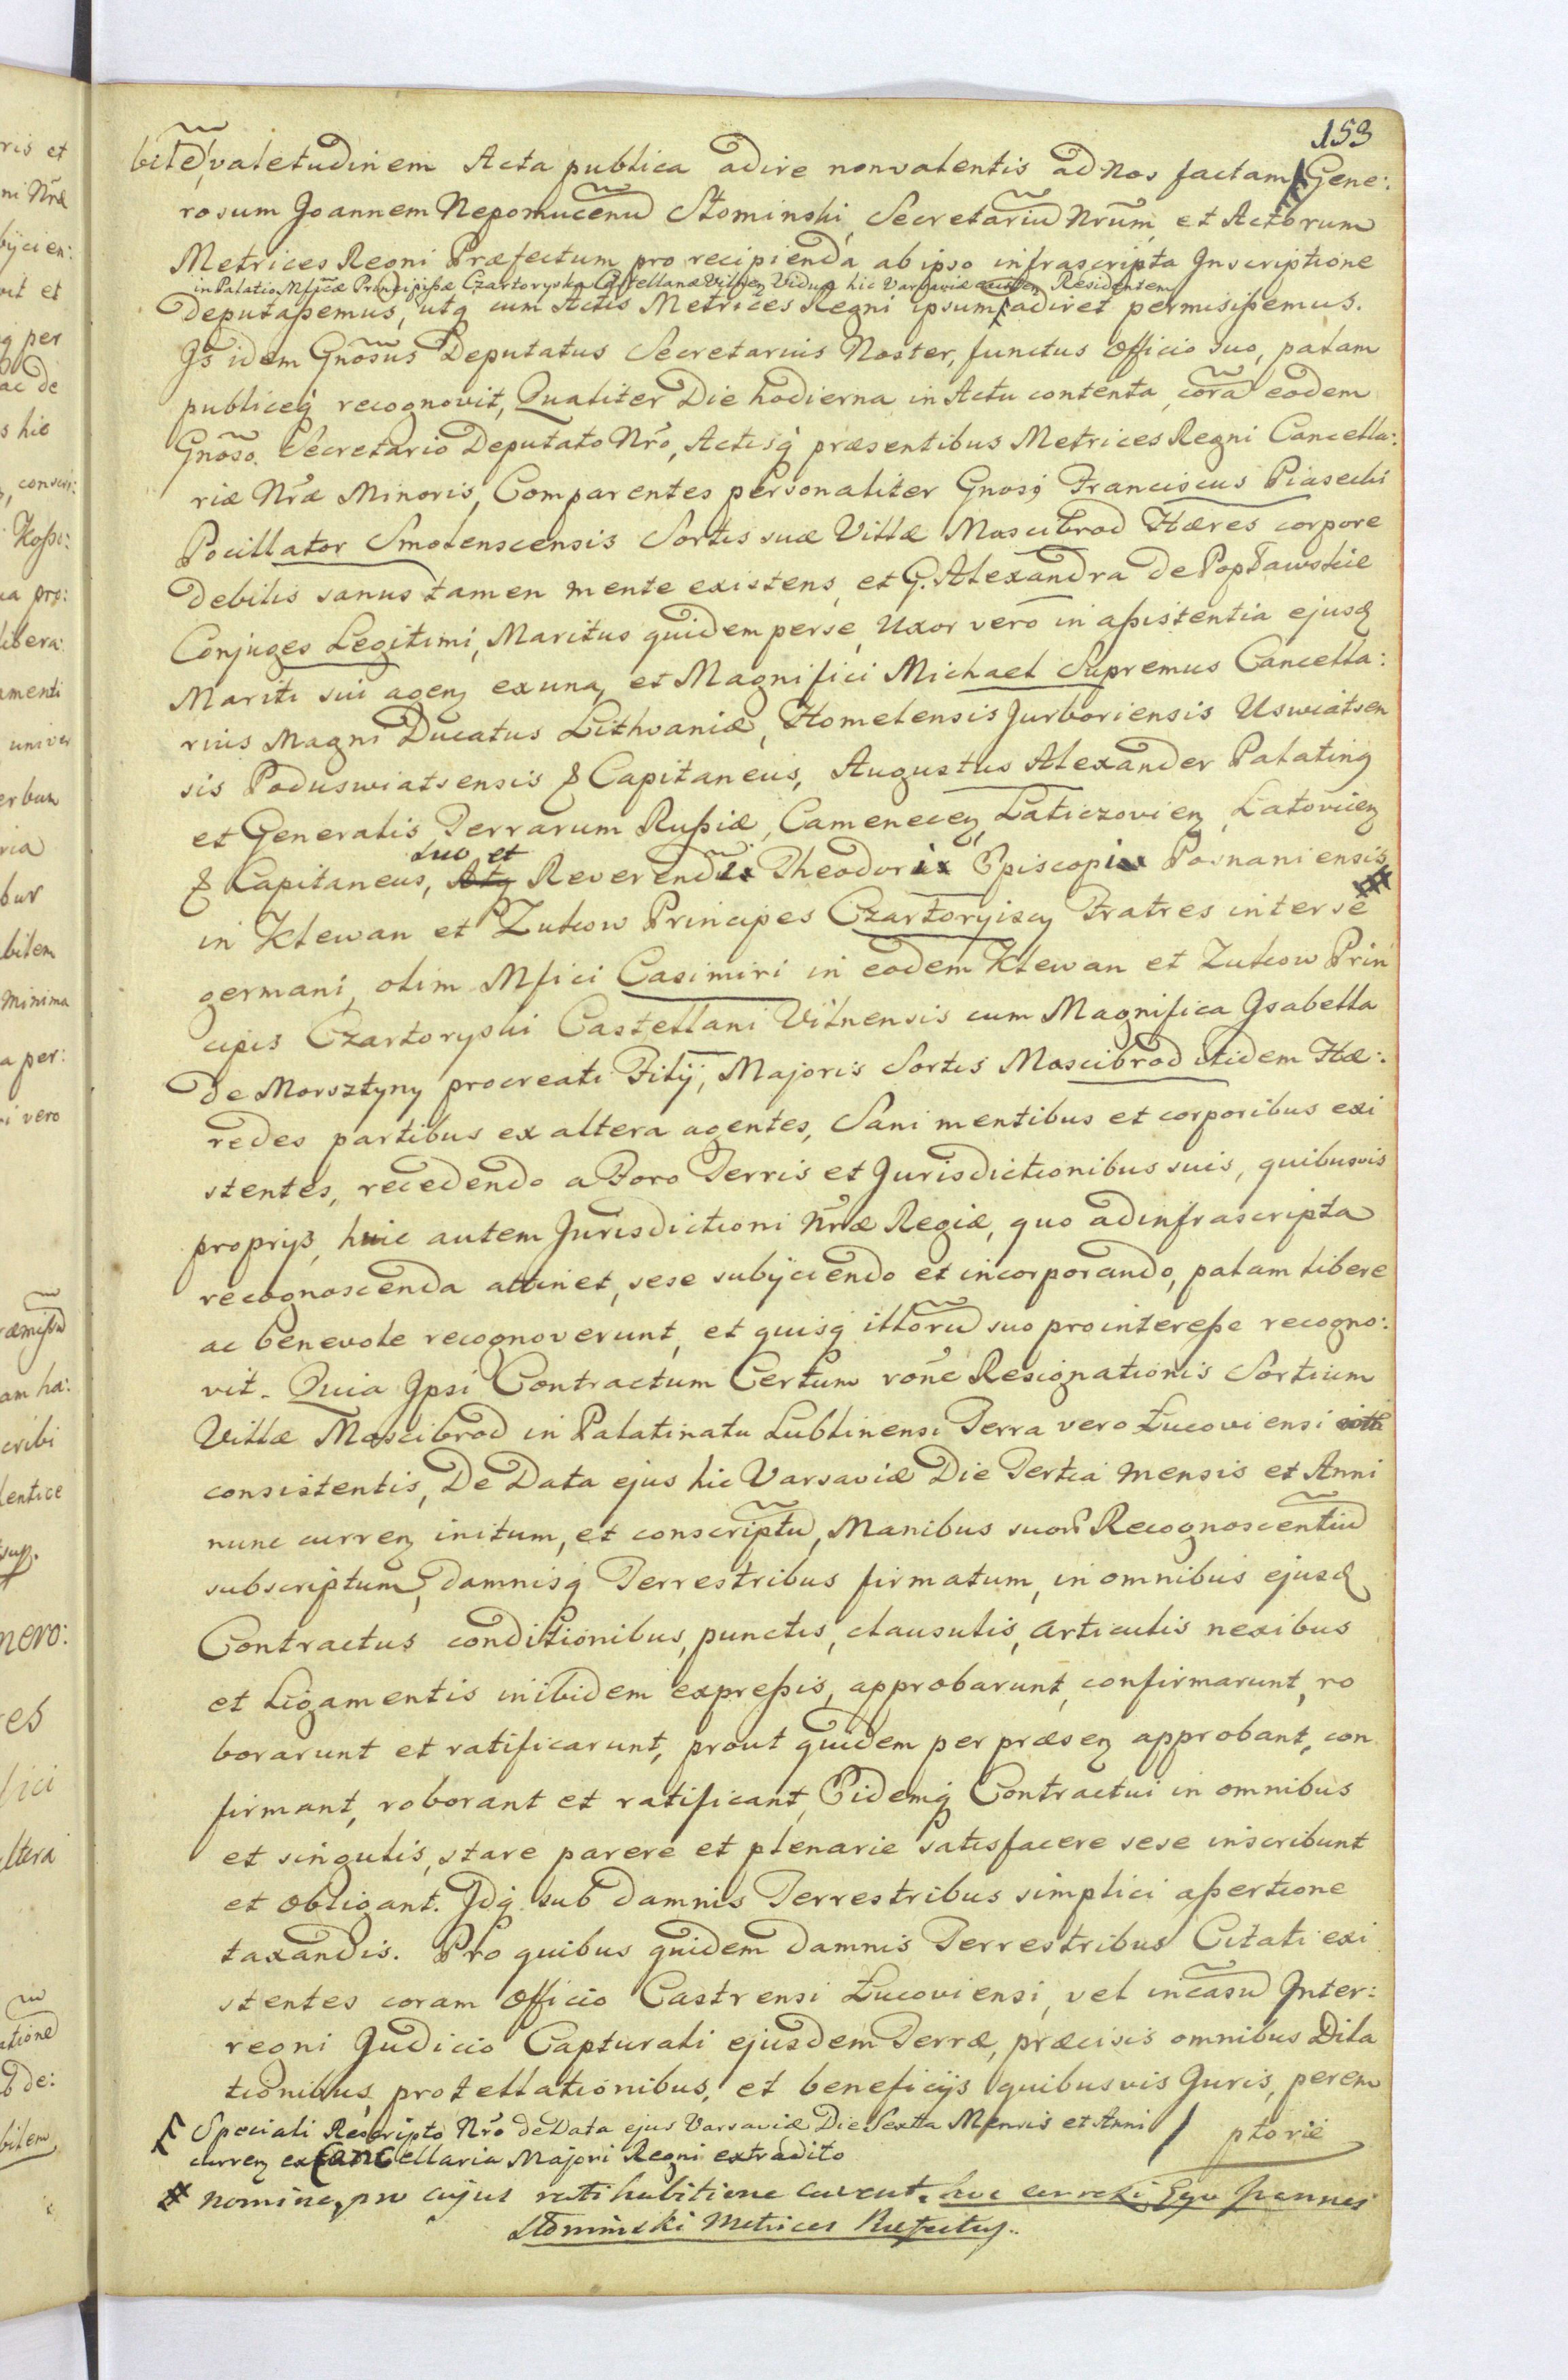 153
bite, valetudinem Acta publica adire nonvalentis ad Nos factam Gene:
rosum Joannem Nepomucenū Słominski, Secretariū Nrūm, et Actorum
Metrices Regni Præfectum pro recipienda ab ipso infrascripta Inscriptione
in Palatio Mficæ Principißæ Czartoryska Castellanæ Vilnen Viduæ hic Varsaviæ Residentem
Deputaßemus, utq cum Actis Metrices Regni ipsum adiret permisißemus.
Is idem Gnōsus Deputatus Secretarius Noster, functus Officio suo, palam
publiceq recognovit, Qualiter Die hodierna in Actu contenta, corā eodem
Gnōso Secretario Deputato Nrō, Actisq præsentibus Metrices Regni Cancella:
riæ Nræ Minoris, Comparentes personaliter Gnosi Franciscus Piasecki
Pocillator Smolenscensis Sortis suæ Villæ Mascibrod Hæres corpore
debilis sanus tamen mente existens, et G. Alexandra de Popławskie
Conjuges Legitimi, Maritus quidem per se, Uxor vero in aßistentia ejusd
Mariti sui agen ex una, et Magnifici Michael Supremus Cancella:
rius Magni Ducatus Lithvaniæ, Homelensis Jurboriensis Uswiatsen
sis Poduswiatsensis & Capitaneus, Augustus Alexander Palatinq
et Generalis Terrarum Rußiæ, Camenecen, Laticzovien, Latovicen
suo et
& Capitaneus, Atq Reverendi Theodori Episcopi Posnaniensis
in Klewan et Zukow Principes Czartoryiscy Fratres inter se
germani, olim Mfici Casimiri in eodem Klewan et Zukow Prin
cipis Czartoryski Castellani Vilnensis cum Magnifica Isabella
de Morsztyny procreati Filij, Majoris Sortis Mascibrod itidem Hæ:
redes partibus ex altera agentes, Sani mentibus et corporibus exi
stentes, recedendo a Foro Terris et Jurisdictionibus suis, quibusvis
proprijs, huic autem Jurisdictioni Nræ Regiæ, quo ad infrascripta
recognoscenda attinet, sese subijciendo et incorporando, palam libere
ac benevole recognoverunt, et quisq illorū suo pro intereße recogno:
vit. Quia Ipsi Contractum Certum rōne Resignationis Sortium
Villæ Mascibrod in Palatinatu Lublinensi Terra vero Łucoviensi
consistentis, De Data ejus hic Varsaviæ Die Tertia Mensis et Anni
nunc curren initum, et conscriptū, Manibus suor Recognoscentiū
subscriptum, damnisq Terrestribus firmatum, in omnibus ejusd
Contractus conditionibus, punctis, clausulis, articulis nexibus
et Ligamentis inibidem expreßis, approbarunt, confirmarunt, ro
borarunt et ratificarunt, prout quidem per præsen approbant, con
firmant, roborant et ratificant, Eidemq Contractui in omnibus
et singulis, stare parere et plenarie satisfacere sese inscribunt
et obligant. Idq sub damnis Terrestribus simplici aßertione
taxandis. Pro quibus quidem damnis Terrestribus Citati exi
stentes coram Officio Castrensi Łucoviensi, vel in casū Inter:
regni Judicio Capturali ejusdem Terræ, præcisis omnibus Dila
tionibus, protellationibus, et beneficijs quibusvis Juris, perem
Speciali Rescripto Nrō de Data ejus Varsaviæ Die Sexta Mensis et Anni / ptorie
curren ex Cancellaria Majori Regni extradito
# nomine, pro cujus ratihabitione cavent. hoc correxi Ego Joannes
Słominski Metrices Præfectus.